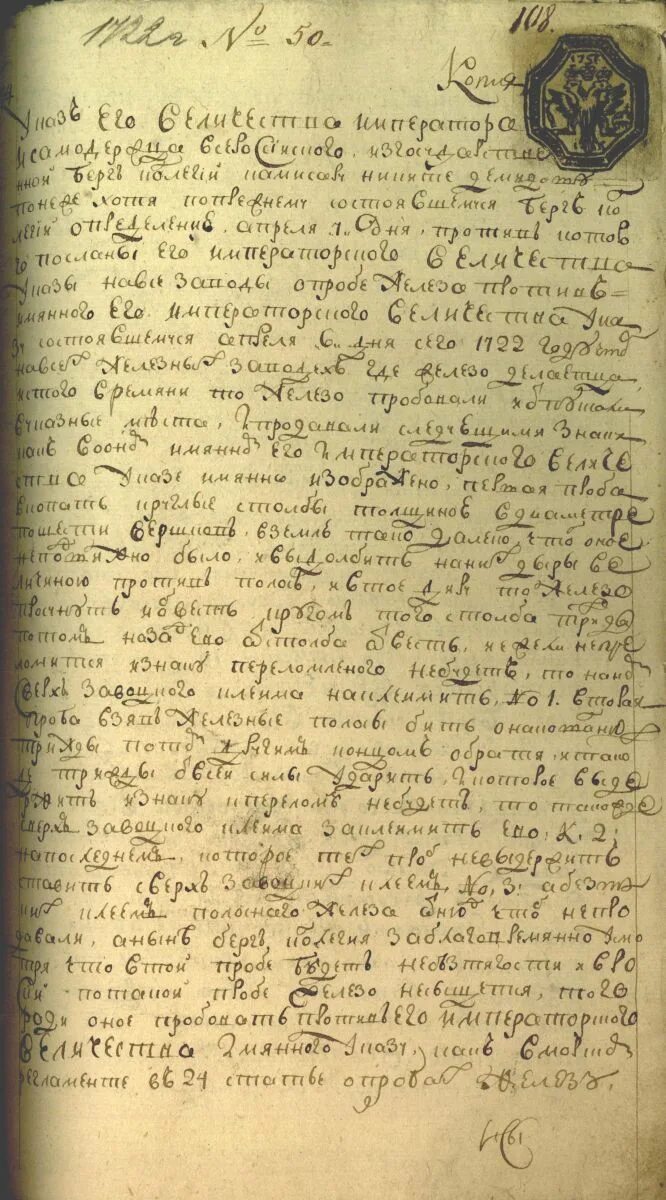 1722 г №. 50
108.
1751
Копия
Указъ Его Величества императора
и самодержца всеросиского, из государстве
нной берг колегии камисару никите демидову
понеже хотя попрежнему состоявшемуся берг ко
легии определению, апреля 1 дня, противъ котор
посланы Его императорского Величества
Указы на все заводы о пробе железа противъ
имянного Его императорского Величества Ука
зу состоявшемуся апреля 6 дня сего 1722 году
на всех железных заводехъ где железо делаетца
с того времяни то железо пробовали и отпускали
в указные места, и продавали следующими знаки
какъ в оном имянном Его Императорского Величе
ства Указе имянно изображено, первая проба
вкопать круглые столбы толщиною в диаметре
по шести вершковъ, в землю тако далеко, чтоб оное
неподвижно было, и выдолбить на них дыры ве
личиною противъ полосъ, и в тое дыру то железо
просунуть и обвесть кругомъ того столба трижды
потомъ назад ево от столба отвесть, и ежели не пре
ломится и знаку переломленого не будетъ, то на нем
сверхъ заводского клейма наклеймить, №1. вторая
проба взявъ железные полосы бить о наковалню
трижды потом другимъ концомъ обратя, и тако
ж трижды от всей силы ударить, и которое выде
ржитъ и знаку к перелому не будетъ, то такожде
сверхъ заводского клейма заклеймить ево, №. 2;
на последнемъ, которое тех проб не выдержитъ
ставить сверхъ заводских клеемъ №, 3: а без тех
них клеемъ полоснаго железа отнюд чтоб не про
давали, а нынѣ берг колегия заблаговремянно усмо
тря что в той пробе будетъ
по такой пробе железо того
ради оное пробовать противъ Его императорского
Величества Имянного Указу, какъ в морском
регламенте въ 24 статье о пробах железу.